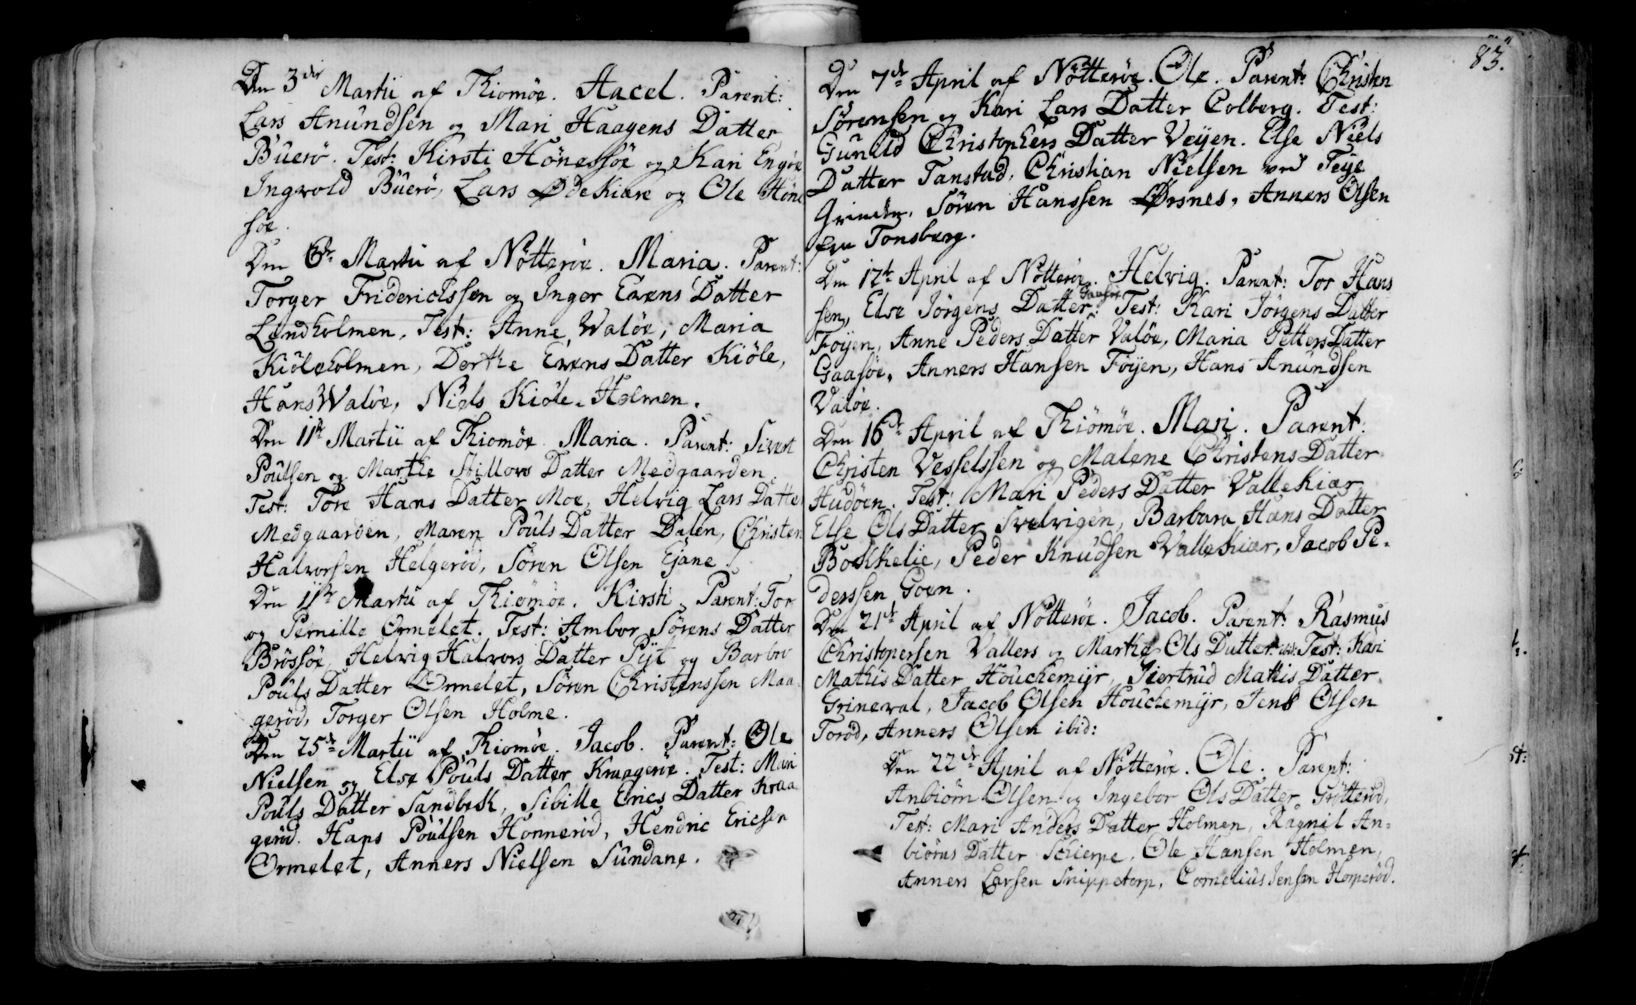 Den 3die Martii af Thiomöe. Aacel. Parent:
Lars Anundsen og Mari Haagens Datter
Buerö. Test: Kirsti Hönessöe og Kari Engöe
Ingvold Buerö, Lars Ødekiære og Ole Höne
söe.
Den 6te Martii af Nötteröe. Maria. Parent:
Torger Fridericksen og Inger Evens Datter
Lindholmen. Test: Anne Walöe, Maria
Kiöleholmen, Dorthe Evens Datter Kiöle,
Hans Walöe, Niels Kiöle-Holmen.
Den 11te Martii af Thiomöe. Maria. Parent: Sivert
Poulsen og Marthe Stillovs Datter Medgaarden
Test: Tore Hans Datter Moe, Helvig Lars Datter
Medgaarden, Maren Pouls Datter Dalen, Christen
Halvorsen Helgeröd, Sören Olsen Ejane
Den 11te Martii af Thiomöe. Kirsti. Parent: Tor
og Pernille Ormelet. Test: Ambor Sörens Datter
Brössöe, Helvig Halvors Datter Pijt og Barbro
Pouls Datter Ormelet, Sören Christenssen Maa
geröd, Torger Olsen Holme.
Den 25de Martii af Thiomöe. Jacob. Parent: Ole
Nielsen og Else Pouls Datter Kraageröe. Test: Mari
Pouls Datter Sandbek, Sibille Erics Datter Kraa
geröd. Hans Poulsen Honneröd, Hendric Ericsen
Ormelet, Anners Nielsen Sundane.
83.
Den 7de April af Nötteröe. Ole. Parent: Christen
Sörensen og Kari Lars Datter Colberg. Test:
Gunild Christophers Datter Veyen. Else Niels
Datter Tanstad, Christian Nielsen ved Teye
Grinden. Sören Hanssen Ørsnes, Anners Olsen
fra Tonsberg.
Den 12te April af Nötteröe. Helvig. Parent: Tor Hans
sen, Else Jörgens Datter. Test: Kari Jörgens Datter
Föyen, Anne Peders Datter Valöe, Maria Petters Datter
Gaasöe, Anners Hansen Föyen, Hans Anundsen
Valöe.
Den 16de April af Thiömöe. Mari. Parent:
Christen Vesselssen og Malene Christens Datter
Hudöen. Test: Mari Peders Datter Vallekiær
Else Ols Datter Svelvigen, Barbara Hans Datter
Bockkelie, Peder Knudsen Vallekiær, Jacob Pe-
derssen Goen.
Den 21de April af Nötteröe. Jacob. Parent: Rasmus
Christopersen Vallers og Marthe Ols Datter Test: Kari
Mathis Datter Houckemijr, Siertrud Mathis Datter
Grineval, Jacob Olsen Houckemijr, Jens Olsen
Toröd, Anners Olsen ibid:
Den 22de April af Nötteröe. Ole. Parent:
Anbiörn Olsen og Ingebor Ols Datter Grötteröd,
Test: Mari Anders Datter Holmen, Ragnil An-
biörns Datter Schierpe, Ole Hansen Holmen,
Anners Larsen Snippetorp, Cornelius Jensen Horperöd.